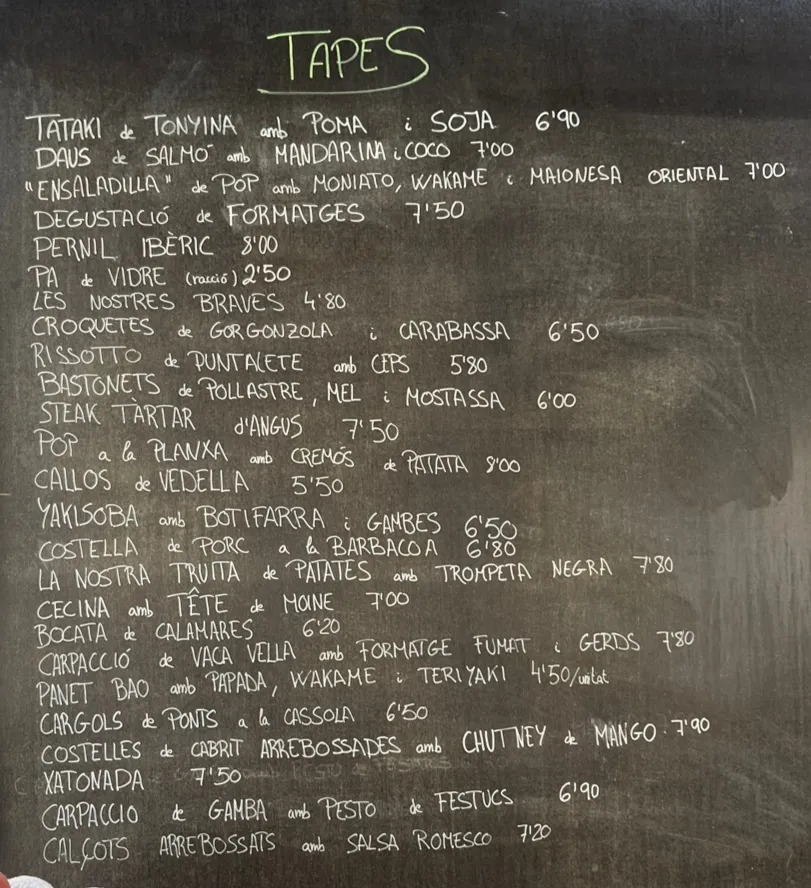 TAPES
TATAKI de TONYINA amb POMA i SOJA 6'90
DAUS de SALMÓ amb MANDARINA i COCO 7'00
"ENSALADILLA" de POP amb MONIATO, WAKAME i MAIONESA ORIENTAL 7'00
DEGUSTACIÓ de FORMATGES 7'50
PERNIL IBÈRIC 8'00
PA de VIDRE (racció) 2'50
LES NOSTRES BRAVES 4'80
CROQUETES de GORGONZOLA i CARABASSA 6'50
RISSOTTO de PUNTALETE amb CEPS 5'80
BASTONETS de POLLASTRE, MEL i MOSTASSA 6'00
STEAK TÀRTAR d'ANGUS 7'50
POP a la PLANXA amb CREMÓS de PATATA 8'00
CALLOS de VEDELLA 5'50
YAKISOBA amb BOTIFARRA i GAMBES 6'50
COSTELLA de PORC a la BARBACOA 6'80
LA NOSTRA TRUITA de PATATES amb TROMPETA NEGRA 7'80
CECINA amb TÊTE de MOINE 7'00
BOCATA de CALAMARES 6'20
CARPACCIÓ de VACA VELLA amb FORMATGE FUMAT i GERDS 7'80
PANET BAO amb PAPADA, WAKAME i TERIYAKI 4'50/unitat
CARGOLS de PONTS a la CASSOLA 6'50
COSTELLES de CABRIT ARREBOSSADES amb CHUTNEY de MANGO. 7'90
XATONADA 7'50
CARPACCIO de GAMBA amb PESTO de FESTUCS 6'90
CALÇOTS ARREBOSSATS amb SALSA ROMESCO 7'20